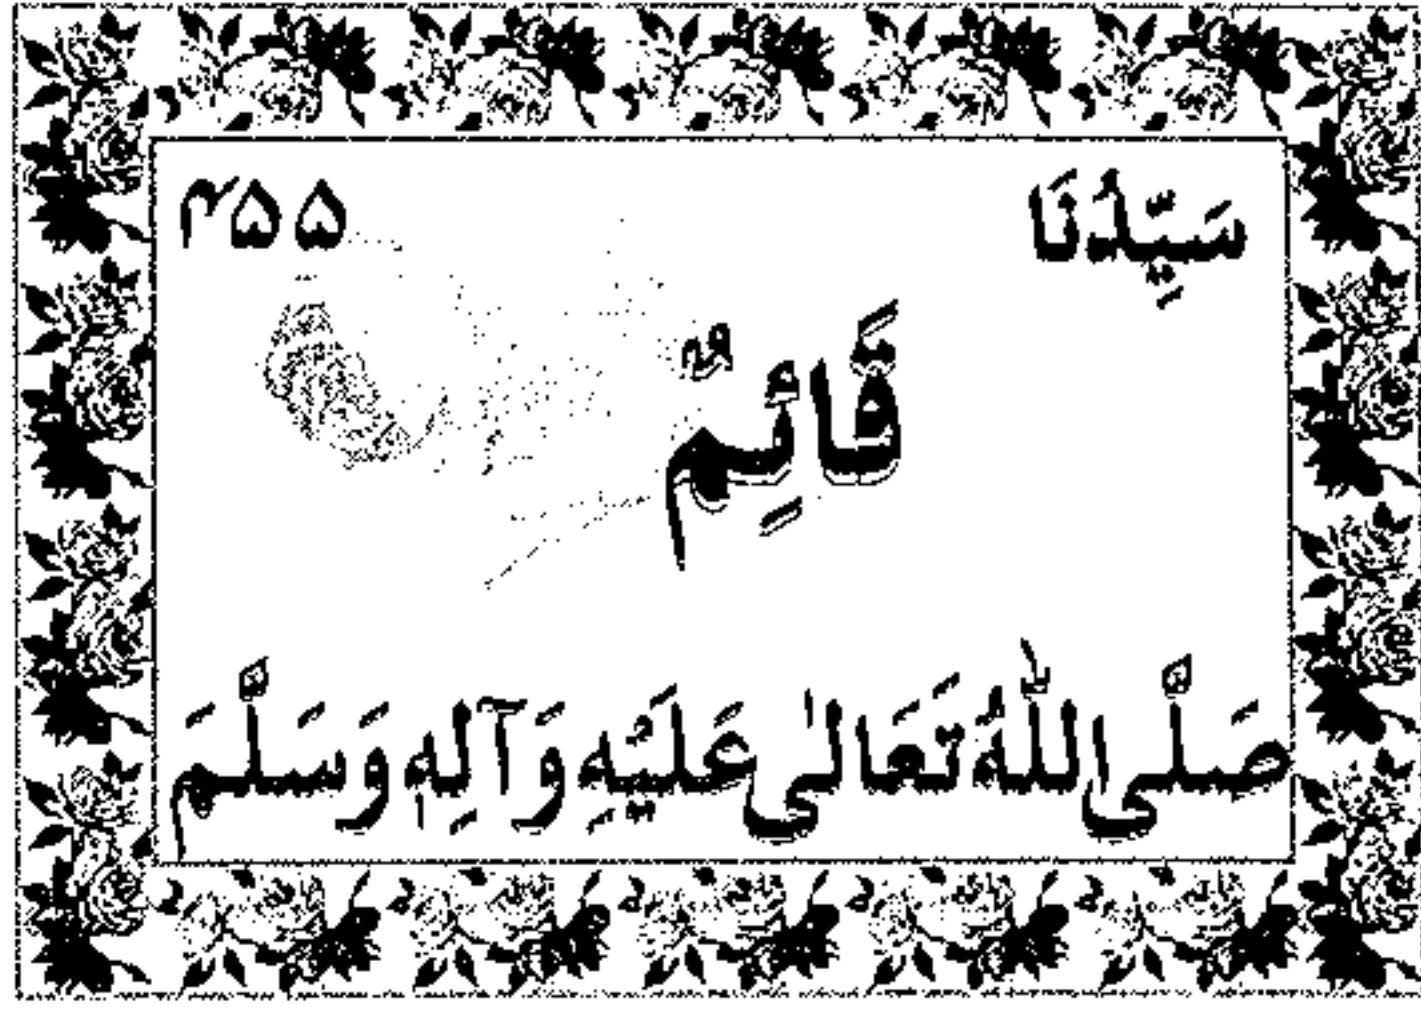 سَيِّدُنَا ۴۵۵
قَائِمٌ
صَلَّى اللهُ تَعَالٰى عَلَيْهِ وَآلِهٖ وَسَلَّمَ